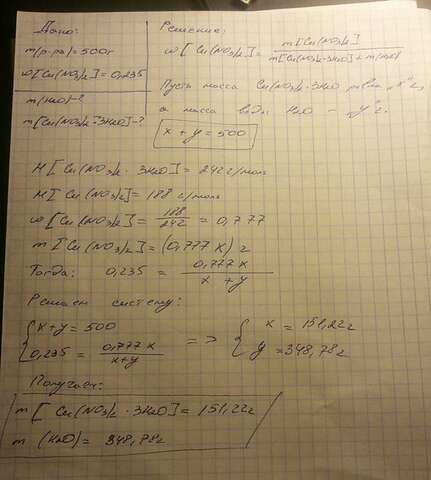 Дано:
m(р-ра) = 500г
ω[Cu(NO₃)₂] = 0,235
m(H₂O) - ?
m[Cu(NO₃)₂·3H₂O] - ?
Решение:
ω[Cu(NO₃)₂] = m[Cu(NO₃)₂] / m[Cu(NO₃)₂·3H₂O] + m(H₂O)
Пусть масса Cu(NO₃)₂·3H₂O равна „x" г,
а масса воды H₂O – „y" г.
x + y = 500
M[Cu(NO₃)₂ · 3H₂O] = 242 г/моль
M[Cu(NO₃)₂] = 188 г/моль
ω[Cu(NO₃)₂] = 188/242 = 0,777
m[Cu(NO₃)₂] = (0,777x) г
Тогда: 0,235 = 0,777x / x + y
Решаем систему:
{ x + y = 500 => { x = 151,22г
0,235 = 0,777x / x+y y = 348,78г
Получаем:
m[Cu(NO₃)₂ · 3H₂O] = 151,22г
m (H₂O) = 348,78г